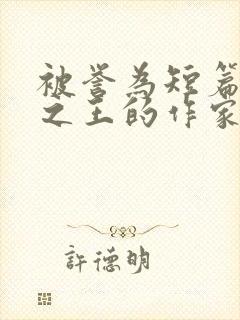 被誉為短篇
之王的作家
許德明